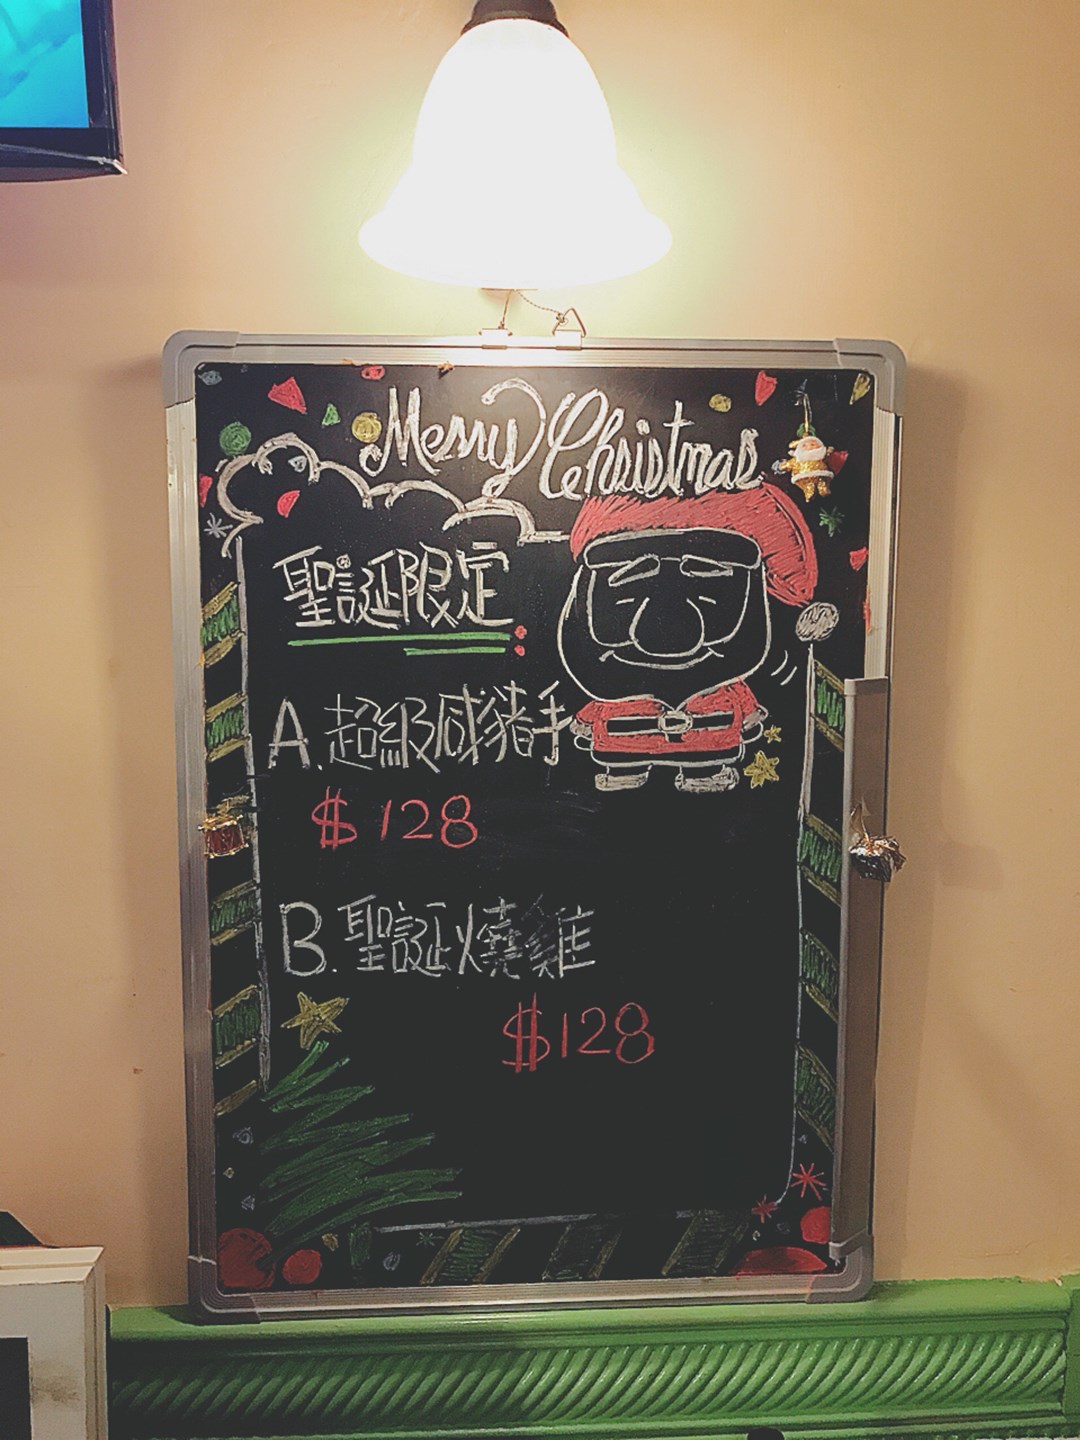 Merry Christmas
聖誕限定
A. 超級咸豬手
$128
B. 聖誕燒雞
$128